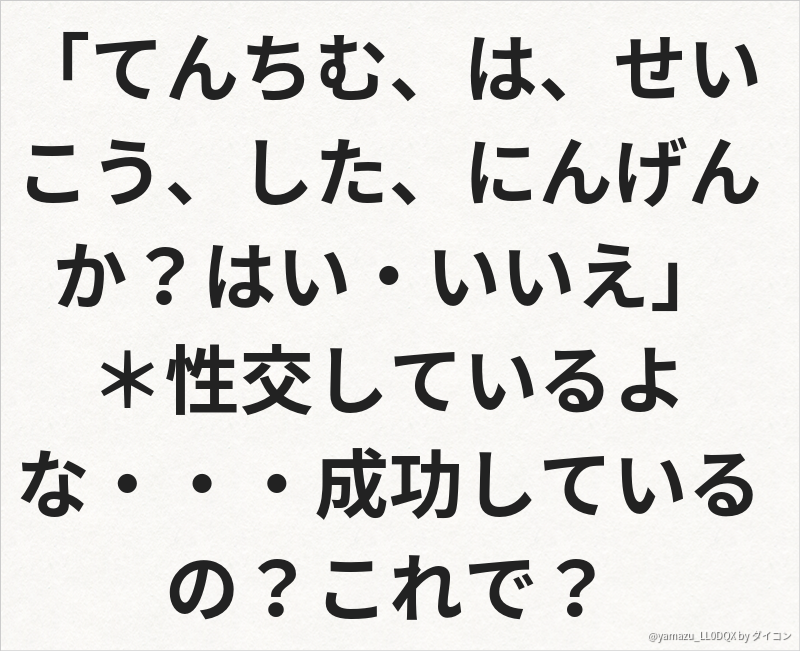 「てんちむ、は、せい
こう、した、にんげん
か？はい・いいえ」
＊性交しているよ
な・・・成功している
の？これで？
@yamazu_LL0DQX by ダイコン